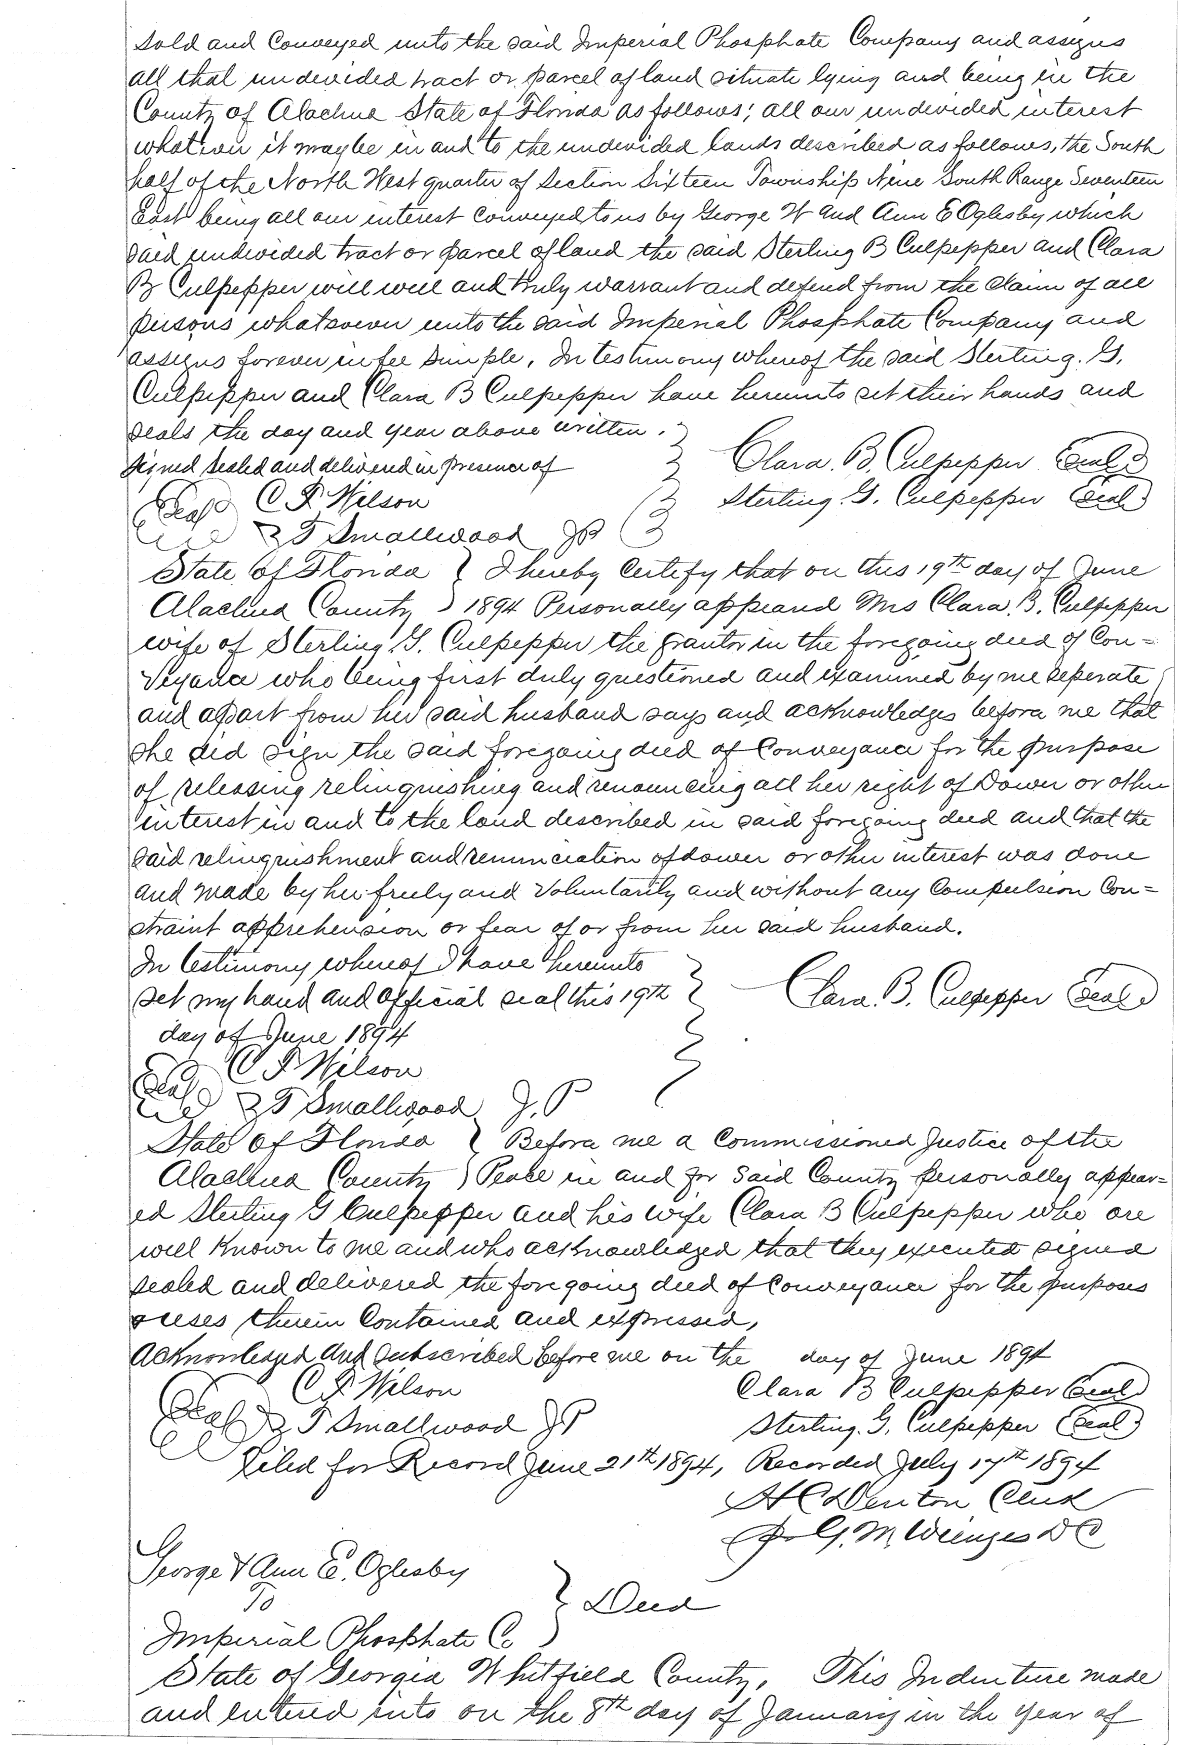 Sold and Conveyed unto the said Imperial Phosphate Company and assigns
all that undevided tract or parcel of land situate lying and being in the
County of Alachua State of Florida as follows; all our undivided interest
whatever it maybe in and to the undivided lands described as follows, the South
half of the North West quarter of Section Sixteen Township Nine South Range Seventeen
East being all our interest Conveyed to us by George W and Ann E Oglesby which
said undivided tract or parcel of land the said Sterling B Culpepper and Clara
B Culpepper will well and truly warrant and defend from the claim of all
persons whatsoever unto the said Imperial Phosphate Company and
assigns forever in fee Simple. In testimony whereof the said Sterling. G.
Culpepper and Clara B Culpepper have hereunto set their hands and
seals the day and year above written.
Signed Sealed and delivered in presence of Clara. B. Culpepper Seal
Seal C F Wilson Sterling. G. Culpepper Seal
T Smallwood JP
State of Florida } I hereby Certify that on this 19th day of June
Alachua County } 1894 Personally appeared Mrs Clara. B. Culpepper
wife of Sterling. G. Culpepper the grantor in the foregoing deed of Con=
veyance who being first duly questioned and examined by me seperate
and apart from her said husband says and acknowledges before me that
she did sign the said foregoing deed of Conveyance for the purpose
of releasing relinquishing and renouncing all her right of Dower or other
interest in and to the land described in said foregoing deed and that the
said relinquishment and renunciation of dower or other interest was done
and made by her freely and voluntarily and without any Compulsion Con=
straint apprehension or fear of or from her said husband.
In testimony whereof I have hereunto
set my hand and official seal this 19th } Clara. B. Culpepper Seal
day of June 1894
C F Wilson
Seal T Smallwood J.P
State of Florida } Before me a Commissioned Justice of the
Alachua County } Peace in and for said County personally appear=
ed Sterling G Culpepper and his wife Clara B Culpepper who are
well known to me and who acknowledged that they executed signed
sealed and delivered the foregoing deed of Conveyance for the purposes
& uses therein Contained and expressed,
Acknowledged and subscribed before me on the day of June 1894
C F Wilson Clara B Culpepper Seal
Seal T Smallwood JP Sterling. G. Culpepper Seal
Filed for Record June 21th 1894, Recorded July 17th 1894
H C Denton Clerk
G. M. DC
George & Ann E. Oglesby
To } Deed
Imperial Phosphate Co
State of Georgia Whitfield County, This Indenture made
and entered into on the 8th day of January in the year of